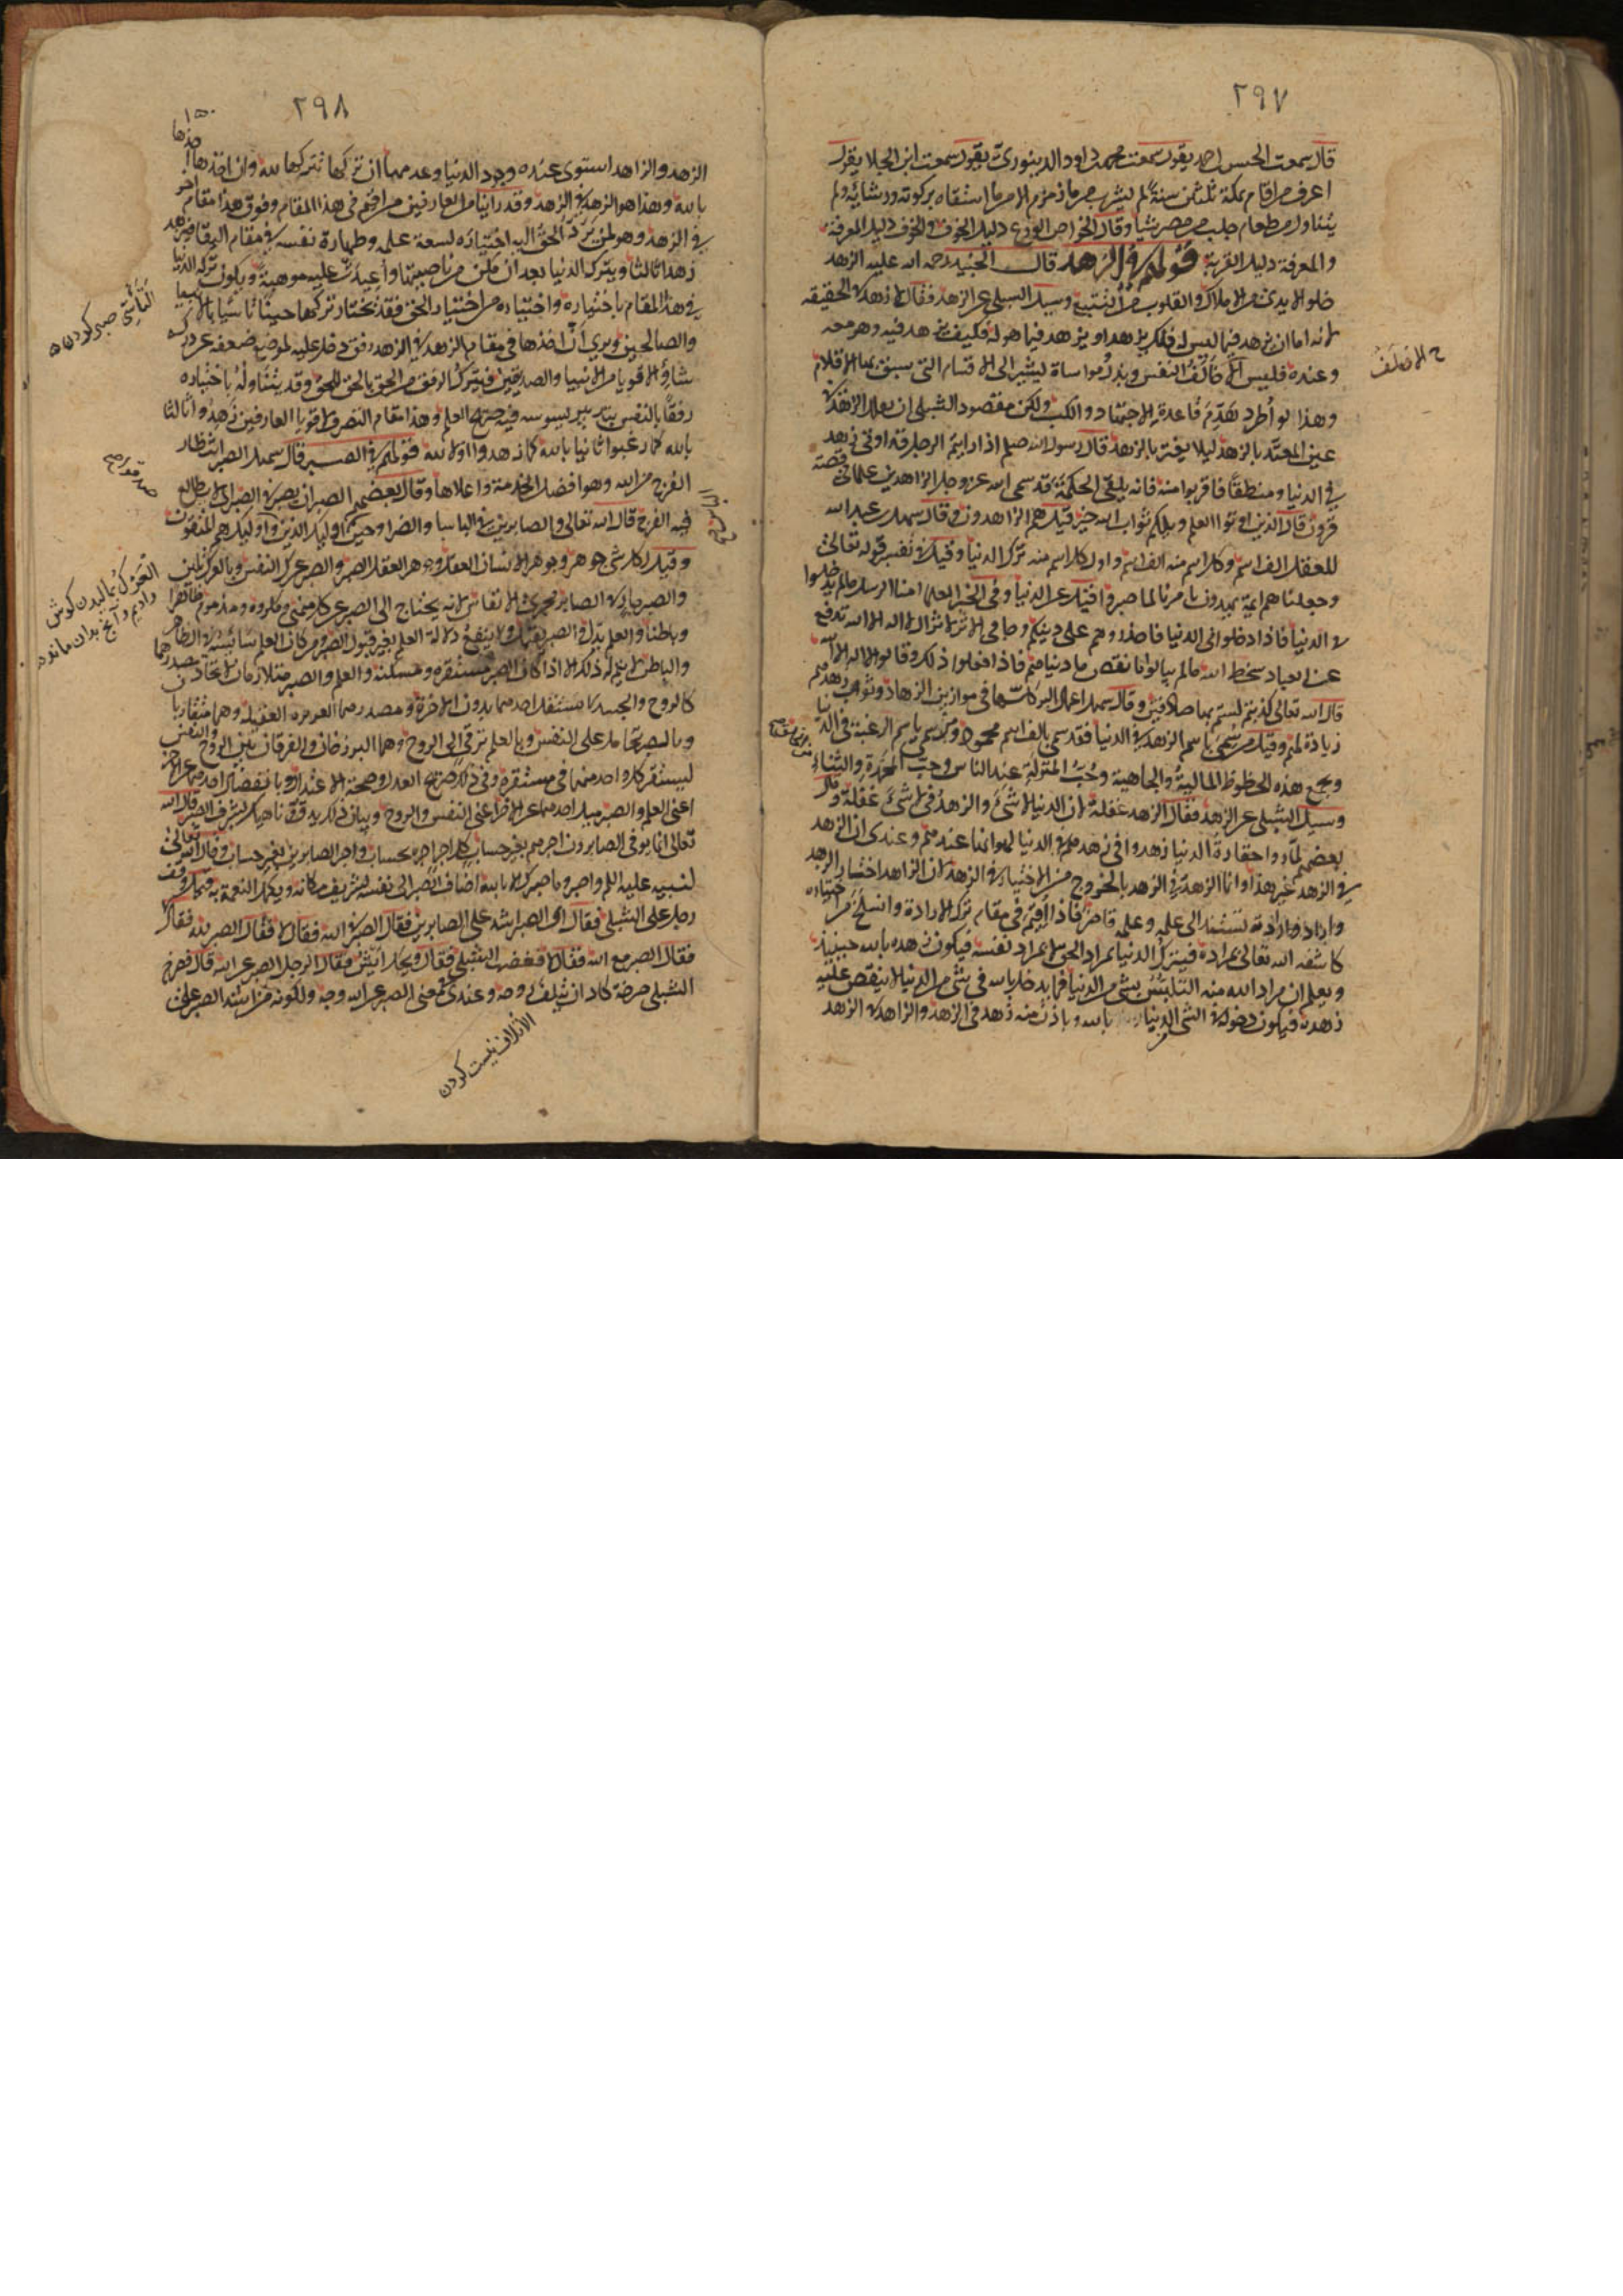 ٢٩٧
قال سمعت الحسن احمد يقول سمعت محمد داود الدينوري يقول سمعت ابن الجلا يقول
اعرف من اقام بمكة ثلثين سنة لم يشرب من ماء زمزم الا من ما استقاه بركوته ورشائه ولم
يتناول من طعام جلب من مصر شيا وقال الخواص الورع دليل الخوف والخوف دليل المعرفة
والمعرفة دليل القربة قولهم في الزهد قال الجنيد رحمه الله عليه الزهد
خلو الايدي من الاملاك والقلوب من التتبع وسيل الشبلي عن الزهد فقال لا زهد في الحقيقة
لانه اما ان يزهد فيما ليس له فليس ذلك بزهد او يزهد فيما هو له فكيف يزهد فيه وهو معه
وعنده فليس الا ظلف النفس وبذل ومواساة يشير الى الاقسام التي سبق بها الاقلام
وهذا لو اطرد هدم قاعدة الاجتهاد والكسب ولكن مقصود الشبلي ان يقلل الزهد في
عين المعتد بالزهد ليلا يغتر به قال رسول الله صلعم اذا رايتم الرجل قد اوتي زهدا
في الدنيا ومنطقا فاقربوا منه فانه يلقى الحكمة وقد سمى الله عز وجل الزاهدين علما في قصة
قرون قال الذين اوتوا العلم ويلكم ثواب الله خير قيل هم الزاهدون وقال سهل بن عبد الله
للعقل الف اسم ولكل اسم منه الف اسم واول كل اسم منه ترك الدنيا وقيل في تفسير قوله تعالى
وجعلناهم ايمة يهدون بامرنا لما صبروا قيل عن الدنيا وفي الخبر العلما امنا الرسل ما لم يدخلوا
في الدنيا فاذا دخلوا في الدنيا فاحذروهم على دينكم وجا في الاثر لا تزال لا اله الا الله تدفع
عن العباد سخط الله ما لم يبالوا ما نقص من دنياهم فاذا فعلوا ذلك وقالوا لا اله الا الله
قال الله تعالى كذبتم لستم بها صادقين وقال سهل اعمال البر كلها في موازين الزهاد وثواب زهدهم
زيادة لهم وقيل من سمي باسم الزهد في الدنيا فقد سمي بالف اسم محمود ومن سمي باسم الرغبة في الدنيا
ويجمع هذه الحظوظ المالية والجاهية وحب المنزلة عند الناس وحب المحمدة والثناء
وسيل الشبلي عن الزهد فقال الزهد غفلة لان الدنيا لا شيء والزهد في لا شيء غفلة وقال
بعضهم لما راوا حقارة الدنيا زهدوا في زهدهم في الدنيا لهوانها عندهم وعندي ان الزهد
في الزهد غير هذا وانما الزهد في الزهد بالخروج من الاختيار في الزهد لان الزاهد اختار الزهد
واراده وارادته تستند الى علمه وعلمه قاصر فاذا اقيم في مقام ترك الارادة وانسلخ من اختياره
كاشفه الله تعالى بمراده فيترك الدنيا بمراد الحق لا بمراد نفسه فيكون زهده بالله حينيذ
ويعلم ان مراد الله منه التلبس بشي من الدنيا فما يدخل بالله في شي من الدنيا لا ينقص عليه
زهده فيكون دخوله في الشي من الدنيا بالله وباذن منه زهد في الزهد والزاهد في الزهد
٢٩٨
الزهد والزاهد استوى عنده وجود الدنيا وعدمها ان تركها تركها لله وان اخذها اخذها
بالله وهذا هو الزهد في الزهد وقد راينا من العارفين من اقيم في هذا المقام وفوق هذا مقام اخر
في الزهد وهو لمن يرد الحق اليه اختياره لسعة علمه وطهارة نفسه في مقام البقا فيزهد
زهدا ثالثا ويترك الدنيا بعد ان مكن من ناصيتها واعيدت عليه موهبة ويكون تركه الدنيا
في هذا المقام باختياره واختياره من اختيار الحق فقد يختار تركها حينا تاسيا بالانبيا
والصالحين ويرى ان اخذها في مقام الزهد في الزهد رفق دخل عليه لموضع ضعفه عن درك
شاو الاقويا من الانبيا والصديقين فيترك الرفق من الحق بالحق للحق وقد يتناوله باختياره
رفقا بالنفس بتدبير يسوسه فيه صريح العلم وهذا مقام التصرف لاقويا العارفين زهدوا ثالثا
بالله كما رغبوا ثانيا بالله كما زهدوا اولا لله قولهم في الصبر قال سهل الصبر انتظار
الفرج من الله وهو افضل الخدمة واعلاها وقال بعضهم الصبر ان يصبر في الصبر اي لا يطالع
فيه الفرج قال الله تعالى والصابرين في الباسا والضرا وحين الباس اوليك الذين صدقوا واوليك هم المتقون
وقيل لكل شي جوهر وجوهر الانسان العقل وجوهر العقل الصبر والصبر عرك النفس وبالعرك تلين
والصبر جار في الصابر مجرى الانفاس لانه يحتاج الى الصبر عن كل منهي ومكروه ومذموم ظاهرا
وباطنا والعلم يدل والصبر يقبل ولا ينفع دلالة العلم بغير قبول الصبر ومن كان العلم سايسه في الظاهر
والباطن لا يتم له ذلك الا اذا كان الصبر مستقره ومسكنه والعلم والصبر متلازمان
كالروح والجسد لا يستقل احدهما بدون الاخر ومصدرهما الغريزة العقلية وهما متقاربان
وبالصبر يتحامل على النفس وبالعلم يترقى الروح وهما البرزخان والفرقان بين الروح والنفس
ليستقر كل واحد منهما في مستقره وفي ذلك صريح العدل وصحة الاعتدال وبانفصال احدهما عن الاخر
اعني العلم والصبر ميل احدهما على الاخر اعني النفس والروح وبيان ذلك يدق وناهيك بشرف الصبر قال الله
تعالى انما يوفى الصابرون اجرهم بغير حساب كل اجير اجره بحساب واجر الصابرين بغير حساب وقال الله تعالى
لنبيه عليه السلم واصبر وما صبرك الا بالله اضاف الصبر الى نفسه لشريف مكانه وتكميل النعمة به قيل وقف
رجل على الشبلي فقال اي الصبر اشد على الصابرين فقال الصبر في الله فقال لا فقال الصبر لله فقال لا
فقال الصبر مع الله فقال لا فغضب الشبلي فقال ويحك ايش فقال الرجل الصبر عن الله قال فصرخ
الشبلي صرخة كاد ان يتلف روحه وعندي في معنى الصبر عن الله وجه ولكونه من اشد الصبر على
التأسي صبر كردن
العرك ماليدن كوش
الاتلاف نيست كردن